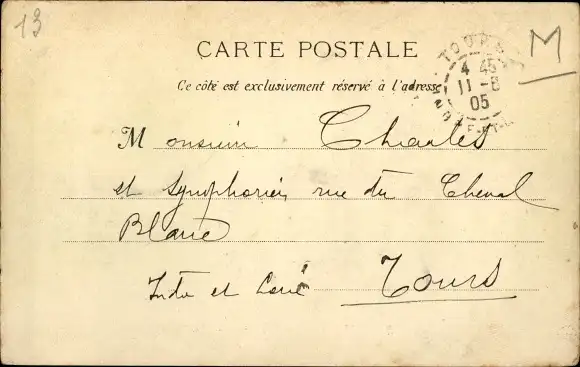 13
M
CARTE POSTALE
Ce côté est exclusivement réservé à l'adresse
TOURS
4 45
11 -8
05
Monsieur Charles
et Symphorien, rue du Cheval
Blanc
Indre et Loire Tours